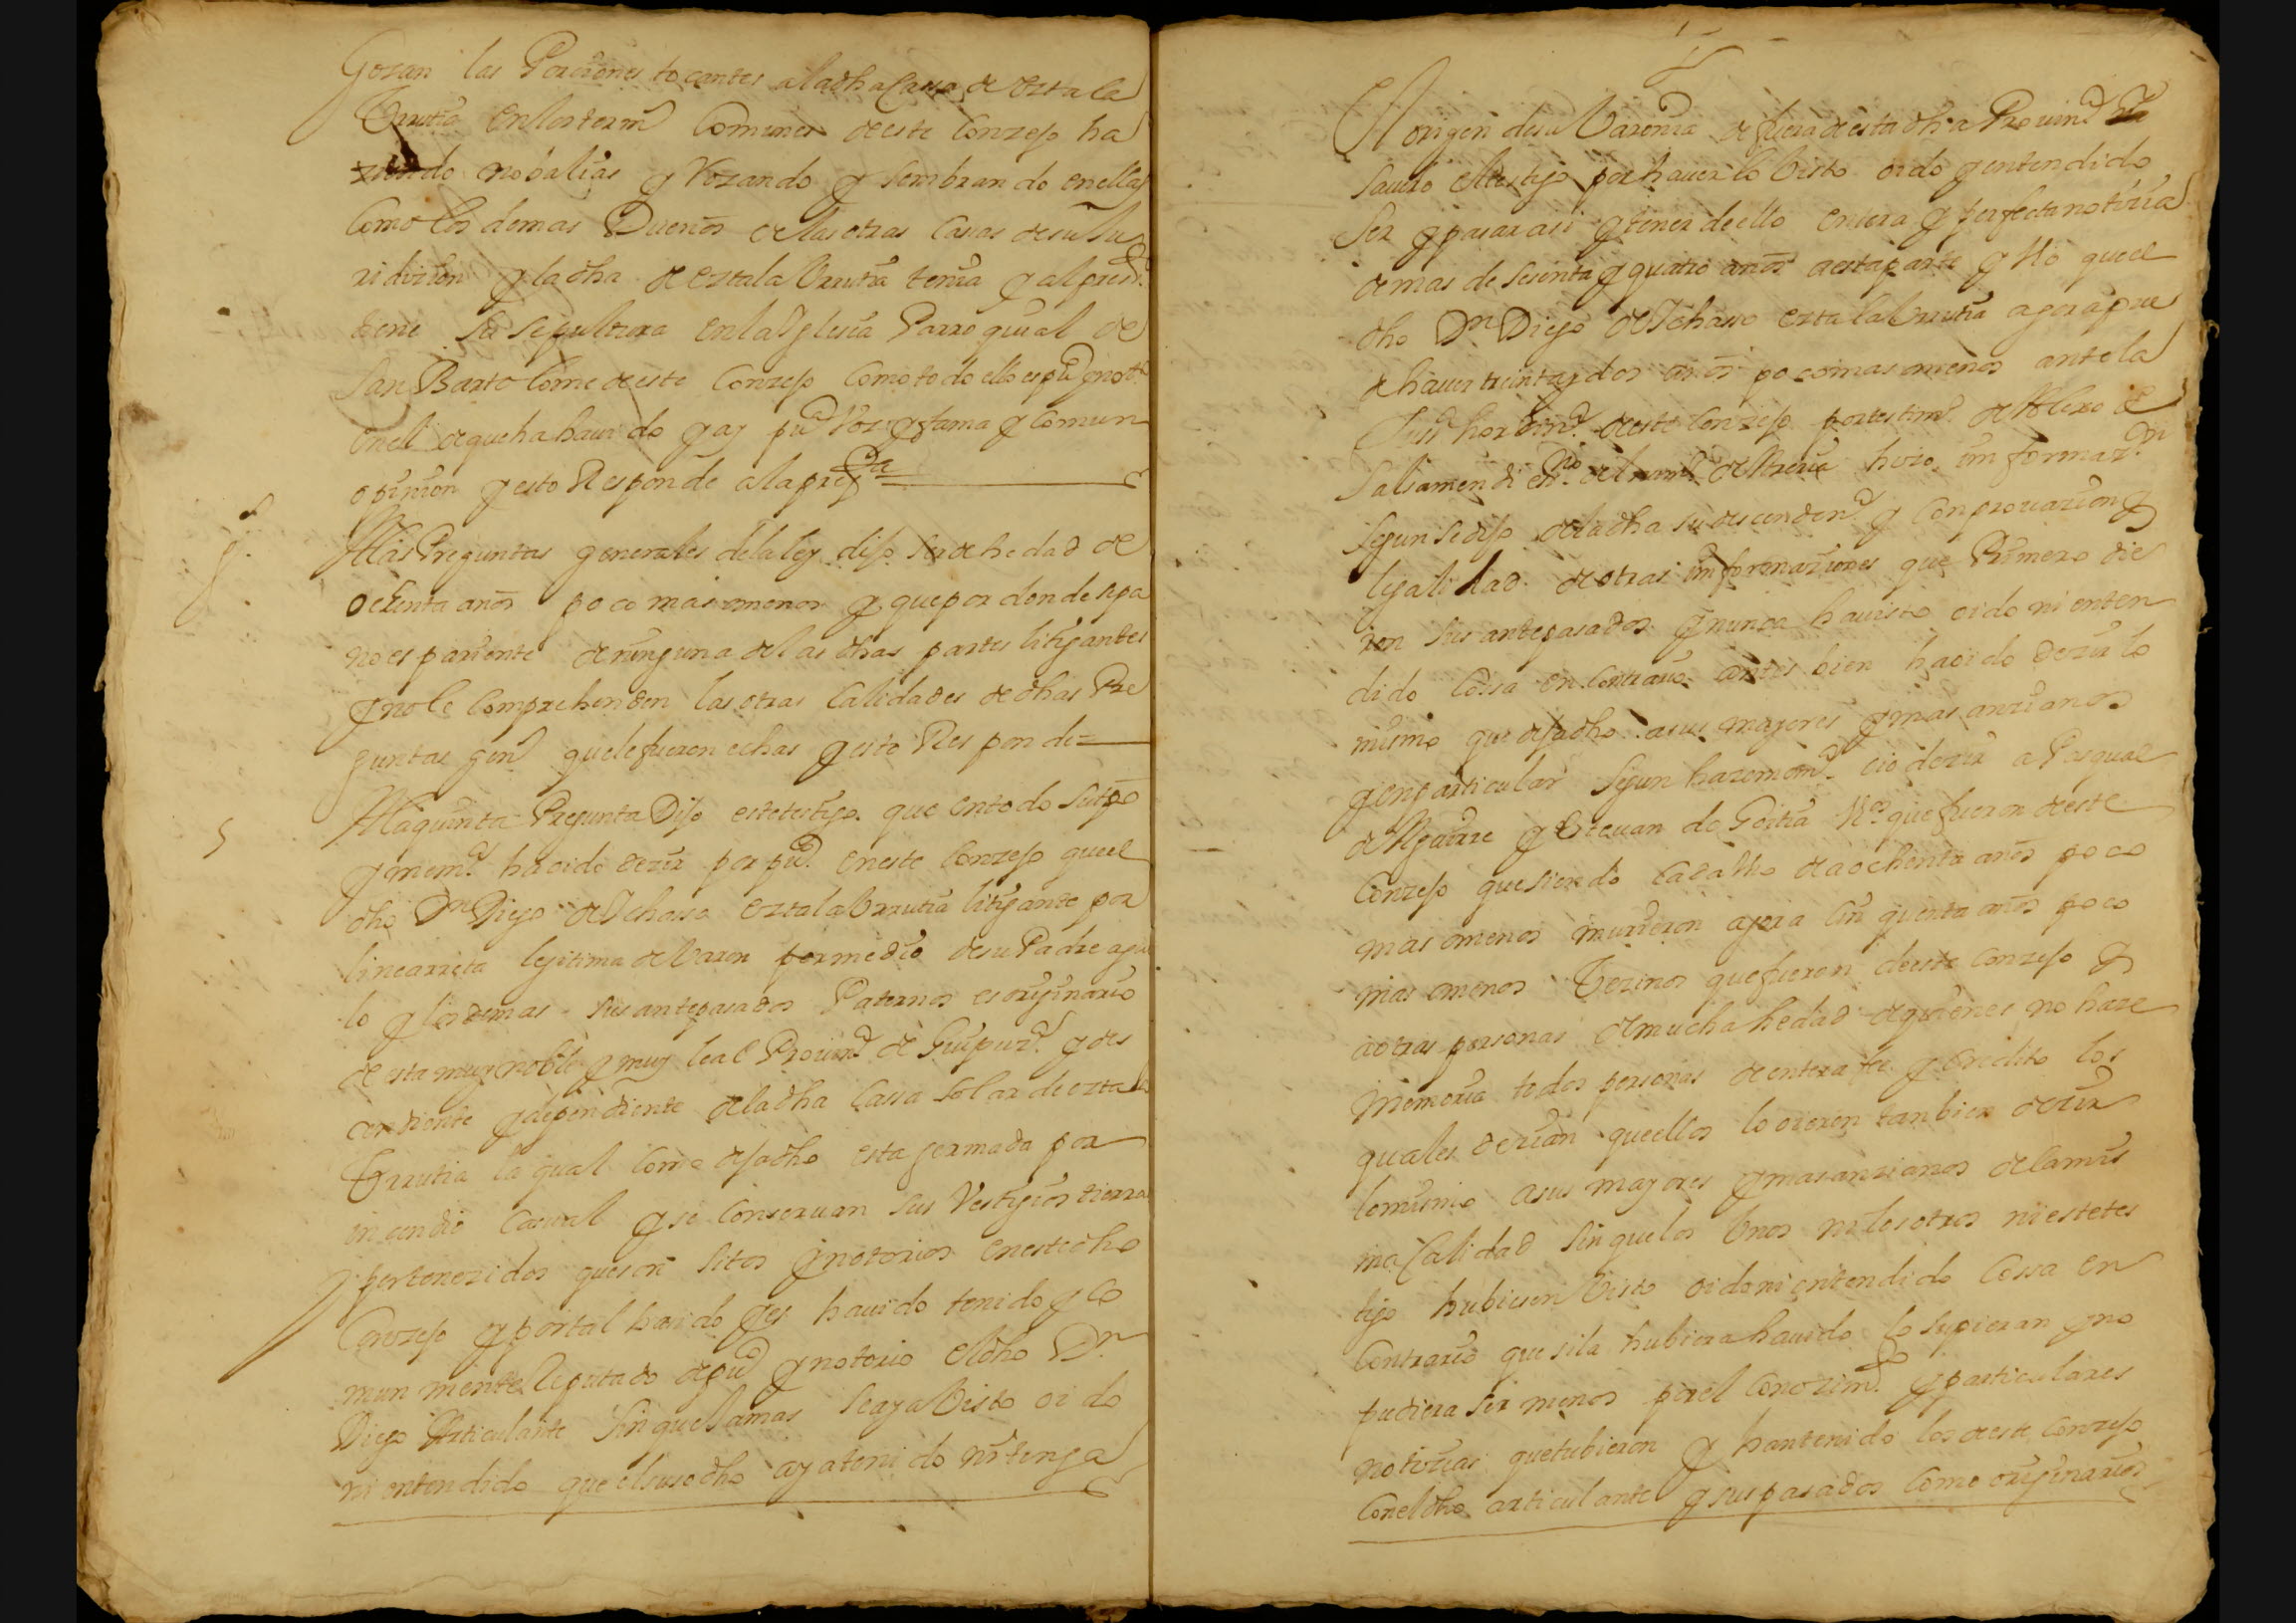 Gozan las Porciones tocantes a la dha Cassa de Ezta la
Urrutia en los term.s Comunes de este Conzejo ha
ziendo nobalias y rozando y sembrando en ellas
Como los demas Dueños de las otras Casas de su Ju
ridizion y la dha de Eztala Urrutia tenia y al pres.te
tiene su sepultura en la Yglesia Parroquial de
San Bartolome de este Conzejo Como todo ello es pu.co y not.o
en el de que ha hauido y ay pu.ca Voz y fama y Comun
opinion y esto Responde a la preg.ta
A las Preguntas generales de la ley dijo ser de hedad de
ochenta años poco mas o menos y que por donde sepa
no es pariente de ninguna de las dhas partes litigantes
y no le Comprehenden las otras Calidades de dhas Pre
guntas gen.s que le fueron echas y esto Responde =
5
A la quinta Pregunta Dijo este testigo que en todo su tpo
y mem.a ha oido dezir por pu.co en este Conzejo que el
dho Dn Diego de Ichasso Eztala Urrutia litigante por
linea recta legitima de Varon por medio de su Padre aguе
lo y los demas sus antepasados Paternos es originario
de esta muy noble y muy leal Prouin.a de Guipuz.a y des
cendiente y dependiente de la dha Cassa solar de Ezta la
Urrutia la qual Como deja dho esta yermada por
incendio Casual y se Conseruan sus Vestigios tierras
y pertenezidos que son sitos y notorios en este dho
Conzejo y por tal ha sido y es hauido tenido y Co
mun mente Reputado de pu.co y notorio el dho Dn
Diego Articulante sin que Jamas se aya Visto oido
ni entendido que el suso dho aya tenido ni tenga
El origen de su Varonia de fuera de esta dha Prouin.a
sauelo el testigo por hauerlo Visto oido y entendido
Ser y pasar asi y tener de ello entera y perfecta notizia
de mas de sesenta y quatro años a esta parte y Vio que el
dho Dn Diego de Ichasso Ezta la Urrutia agora pue
de hauer treinta y dos años poco mas o menos ante la
Just.a hordin.a de este Conzejo por testim.o de Alexo de
Saliamendi es.no del num.o de Azcoitia hizo informaz.on
Segun se dijo de la dha su descenden.a y Conprouazion y
legalidad de otras informaziones que Primero die
ron sus antepasados y nunca ha uisto oido ni enten
dido Cossa en Contrario antes bien ha oido dezir lo
mismo que deja dho a sus mayores y mas anzianos
y en particular segun haze mem.a oio dezir a Pasqual
de Aguirre y Esteuan de Goitia V.os que fueron de este
Conzejo que siendo Cada Uno de a ochenta años poco
mas o menos murieron agora Cinquenta años poco
mas o menos Vezinos que fueron de este Conzejo y
a otras personas de mucha hedad de quienes no haze
memoria todos personas de entera fee y Credito los
quales dezian que ellos lo oieron tanbien dezir
lo mismo a sus mayores y mas anzianos de la mis
ma Calidad sin que los Unos ni los otros ni este tes
tigo hubiesen Visto oido ni entendido Cossa en
Contrario que si la hubiera hauido lo supieran y no
pudiera ser menos por el Conozim.to y particulares
notizias que tubieron y han tenido los de este Conzejo
Con el dho articulante y sus pasados Como originarios